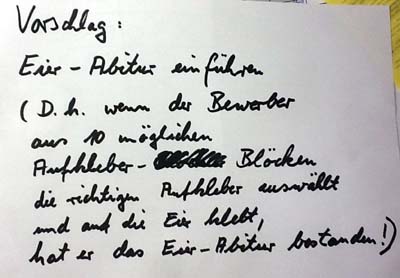 Vorschlag:
Eier-Abitur einführen
(D.h. wenn der Bewerber
aus 10 möglichen
Aufkleber- Blöcken
die richtigen Aufkleber auswählt
und auf die Eier klebt,
hat er das Eier-Abitur bestanden!)